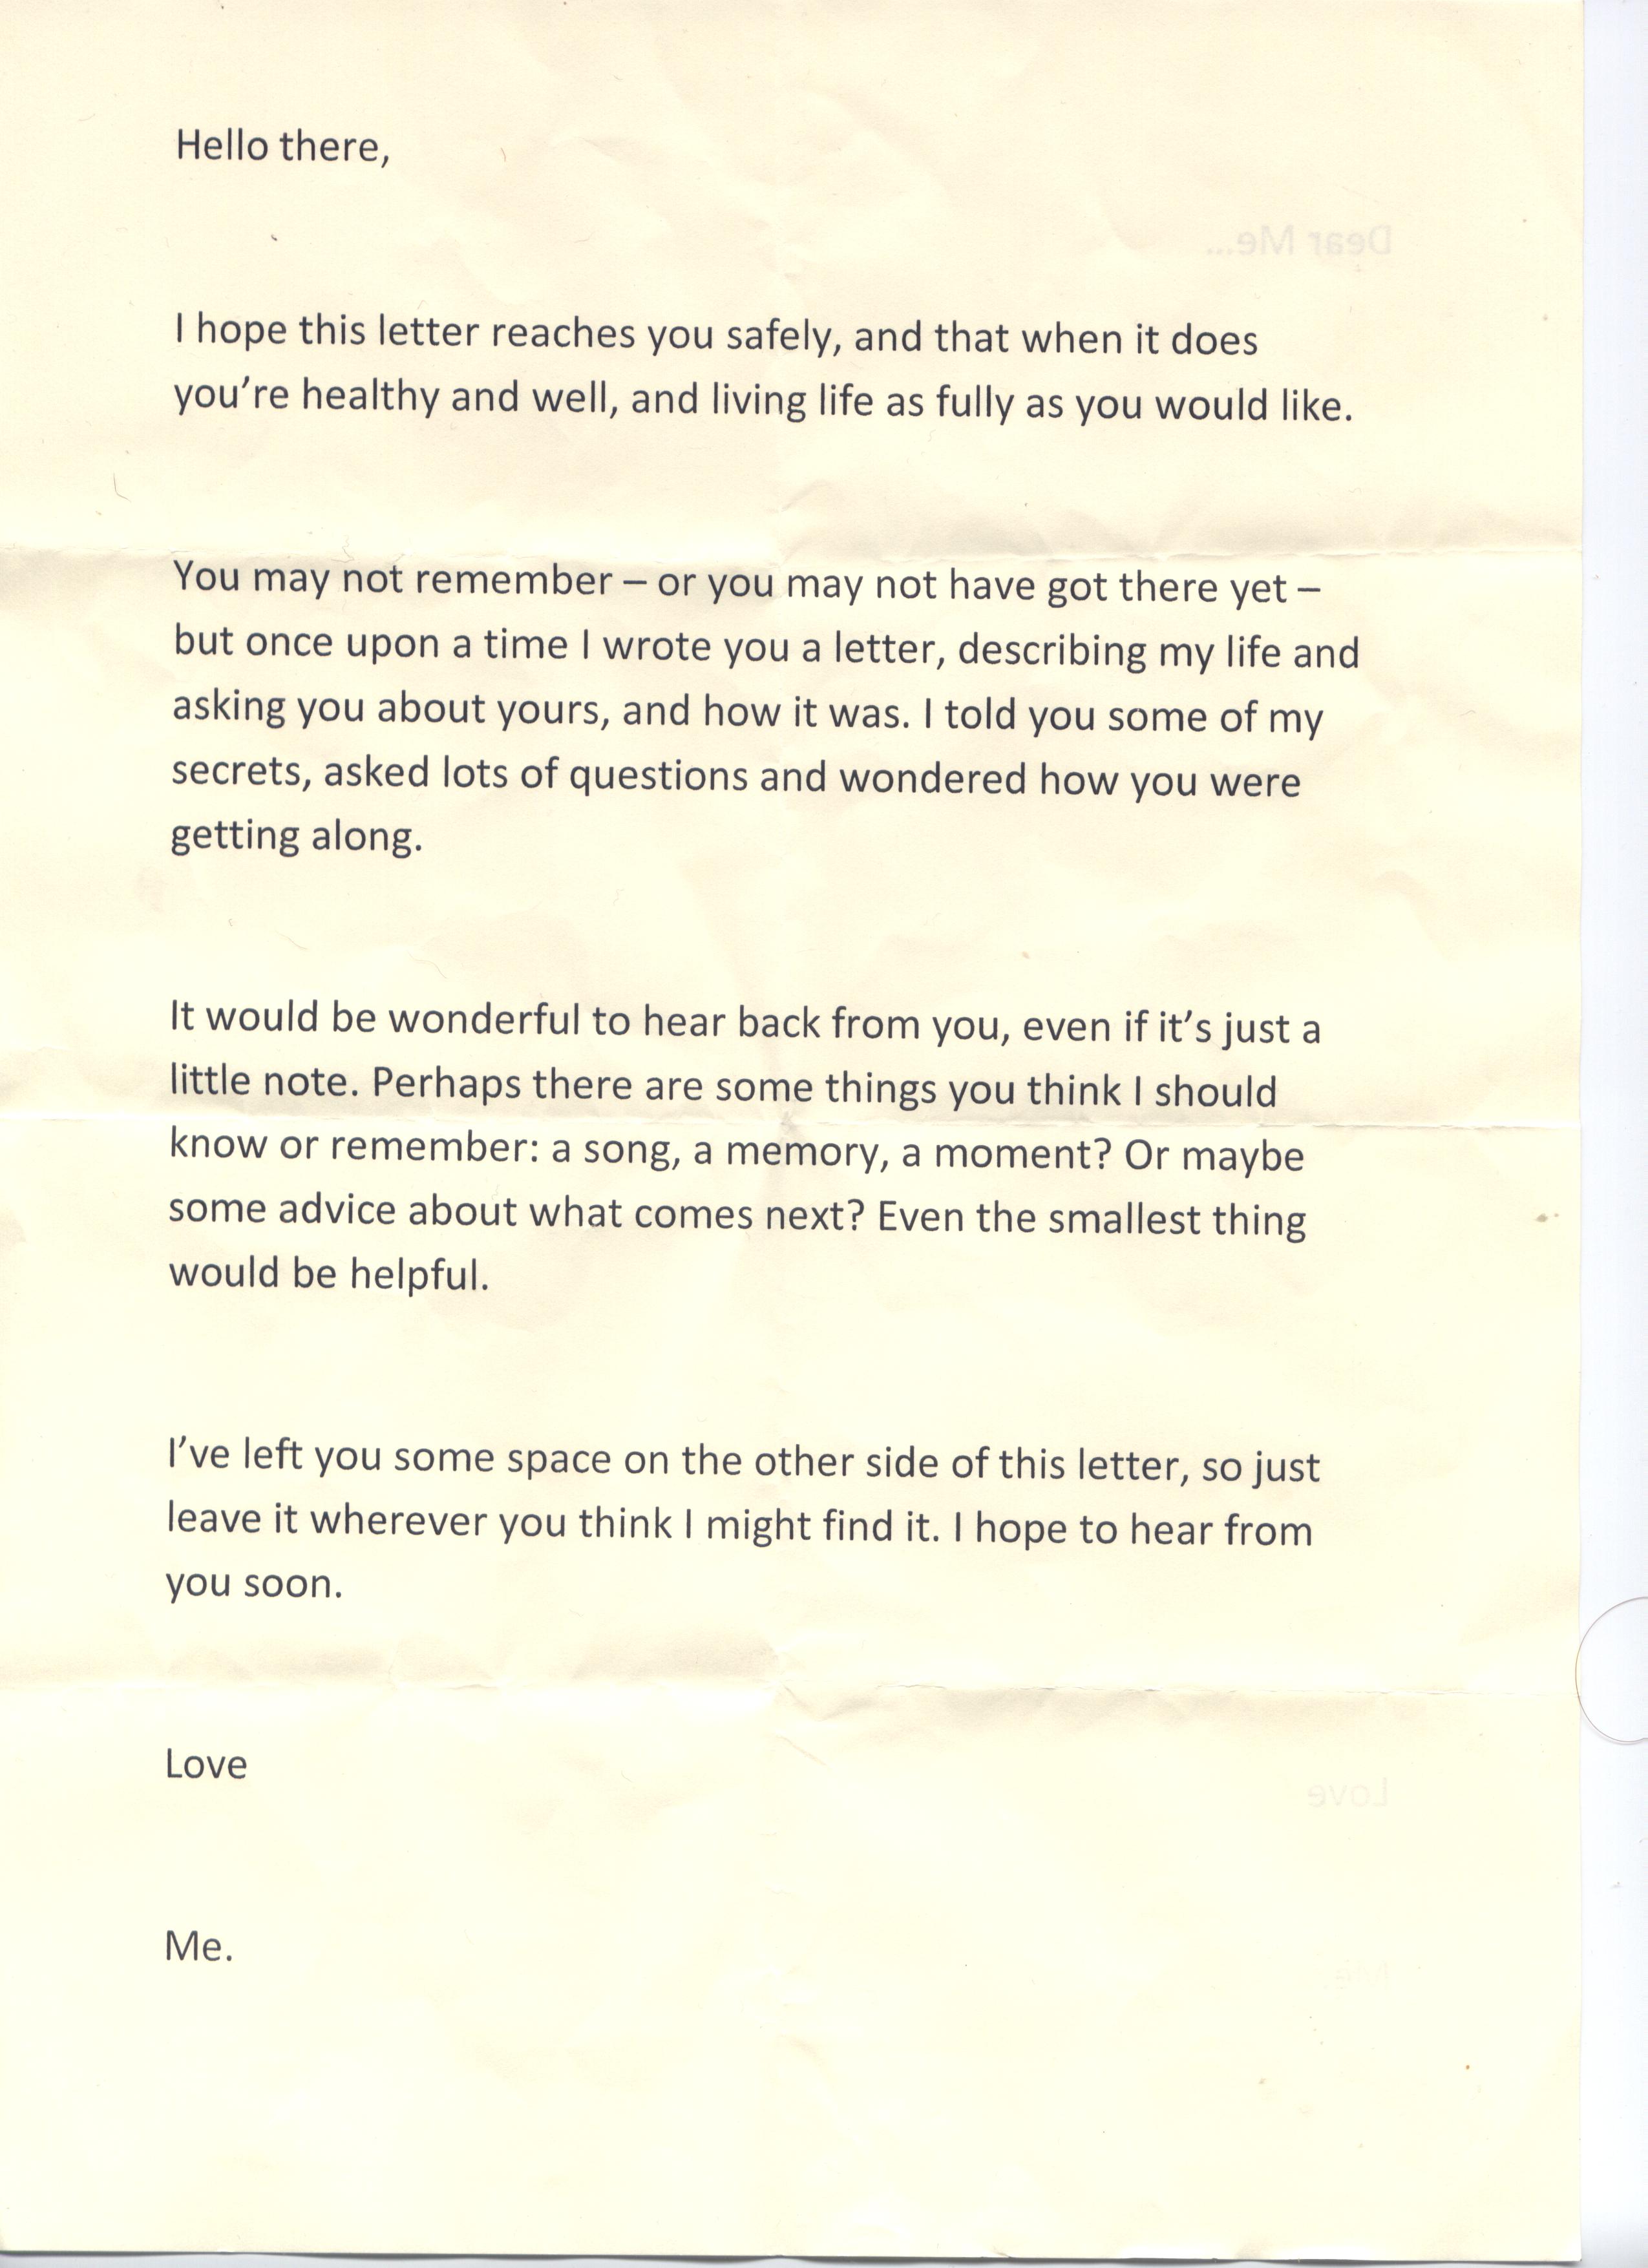 Hello there,
Dear Me...
I hope this letter reaches you safely, and that when it does
you’re healthy and well, and living life as fully as you would like.
You may not remember – or you may not have got there yet –
but once upon a time I wrote you a letter, describing my life and
asking you about yours, and how it was. I told you some of my
secrets, asked lots of questions and wondered how you were
getting along.
It would be wonderful to hear back from you, even if it’s just a
little note. Perhaps there are some things you think I should
know or remember: a song, a memory, a moment? Or maybe
some advice about what comes next? Even the smallest thing
would be helpful.
I’ve left you some space on the other side of this letter, so just
leave it wherever you think I might find it. I hope to hear from
you soon.
Love
Love
Me.
Me.